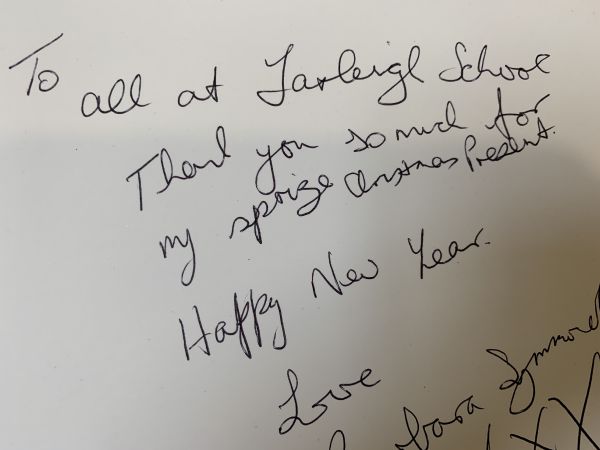 To
all at Farleigh School
Thank you so much for
my sprize Christmas Present.
Happy New Year.
Love
Barbara
XX